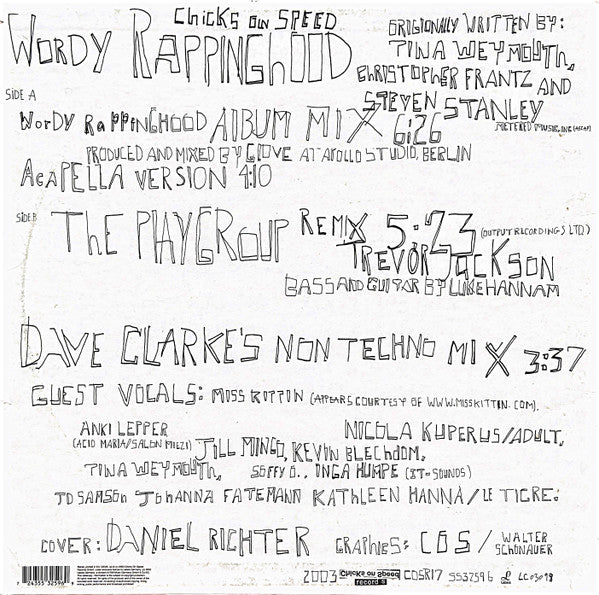 Chicks on SPEED
WORDY RAPPINGHOOD
ORIGIONALLY WRITTEN BY:
TINA WEYMOUTH,
CHRISTOPHER FRANTZ AND
STEVEN STANLEY
METERED MUSIC, INC (ASCAP)
SIDE A
WORDY RAPPINGHOOD ALBUM MIX 6:26
PRODUCED AND MIXED BY GIOVE AT APOLLO STUDIO, BERLIN
ACAPELLA VERSION 4:10
SIDE B
THE PLAYGROUP REMIX 5:23 (OUTPUT RECORDINGS LTD.)
TREVOR JACKSON
BASS AND GUITAR BY LUKE HANNAM
DAVE CLARKE'S NON TECHNO MIX 3:37
GUEST VOCALS: MISS KITTIN (APPEARS COURTESY OF WWW.MISSKITTIN.COM).
ANKI LEPPER
(ACID MARIA/SALON MIEZI)
JILL MINGO, KEVIN BLECHDOM,
NICOLA KUPERUS/ADULT,
TINA WEYMOUTH, SOFFY O., INGA HUMPE (IT-SOUNDS)
TO SAMSON JOHANNA FATEMANN KATHLEEN HANNA/LE TIGRE.
COVER: DANIEL RICHTER GRAPHICS: COS / WALTER SCHÖNAUER
2003 Chicks on Speed records COSR17 5532596 LC 03098
7 24355 32596 9